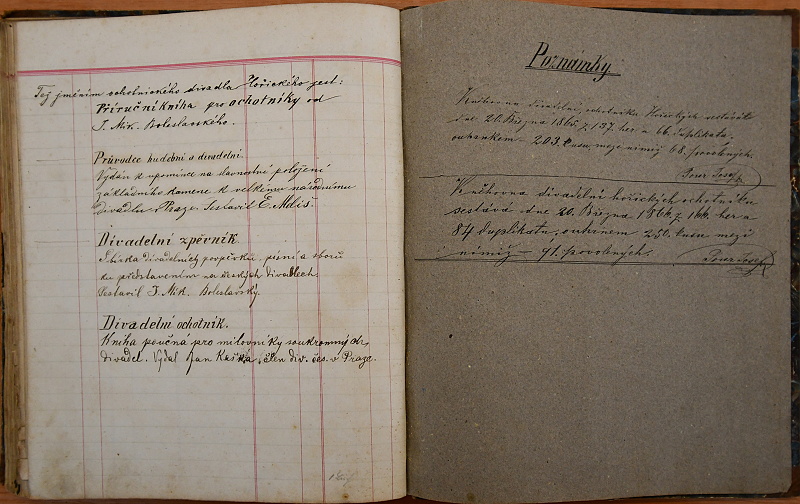 Též jměním ochotnického divadla Hořického jest:
Příruční kniha pro ochotníky od
J. Mik. Boleslavského.
Průvodce hudební a divadelní.
Vydán k upomínce na slavnostní položení
základního kamene k velkému národnímu
divadlu v Praze. Sestavil E. Meliš.
Divadelní zpěvník.
Sbírka divadelních popěvků, písní a sborů
ku představením na českých divadlech.
Sestavil J. Mik. Boleslavský.
Divadelní ochotník.
Kniha poučná pro milovníky soukromných
divadel. Vydal Jan Kaška, člen div. čes. v Praze.
Poznámky
Knihovna divadelní ochotníků Hořických sestává
dne 20. Března 1865 z 137. her a 66. duplikátů,
ouhrnkem – 203. kusů, mezi nimiž 68. povolených.
Pour Josef
Knihovna divadelní hořických ochotníků
sestává dne 20. Března 1866. z 166. her a
84 duplikátů, ouhrnem 250. kusů mezi
nimiž – 91. povolených.
Pour Josef